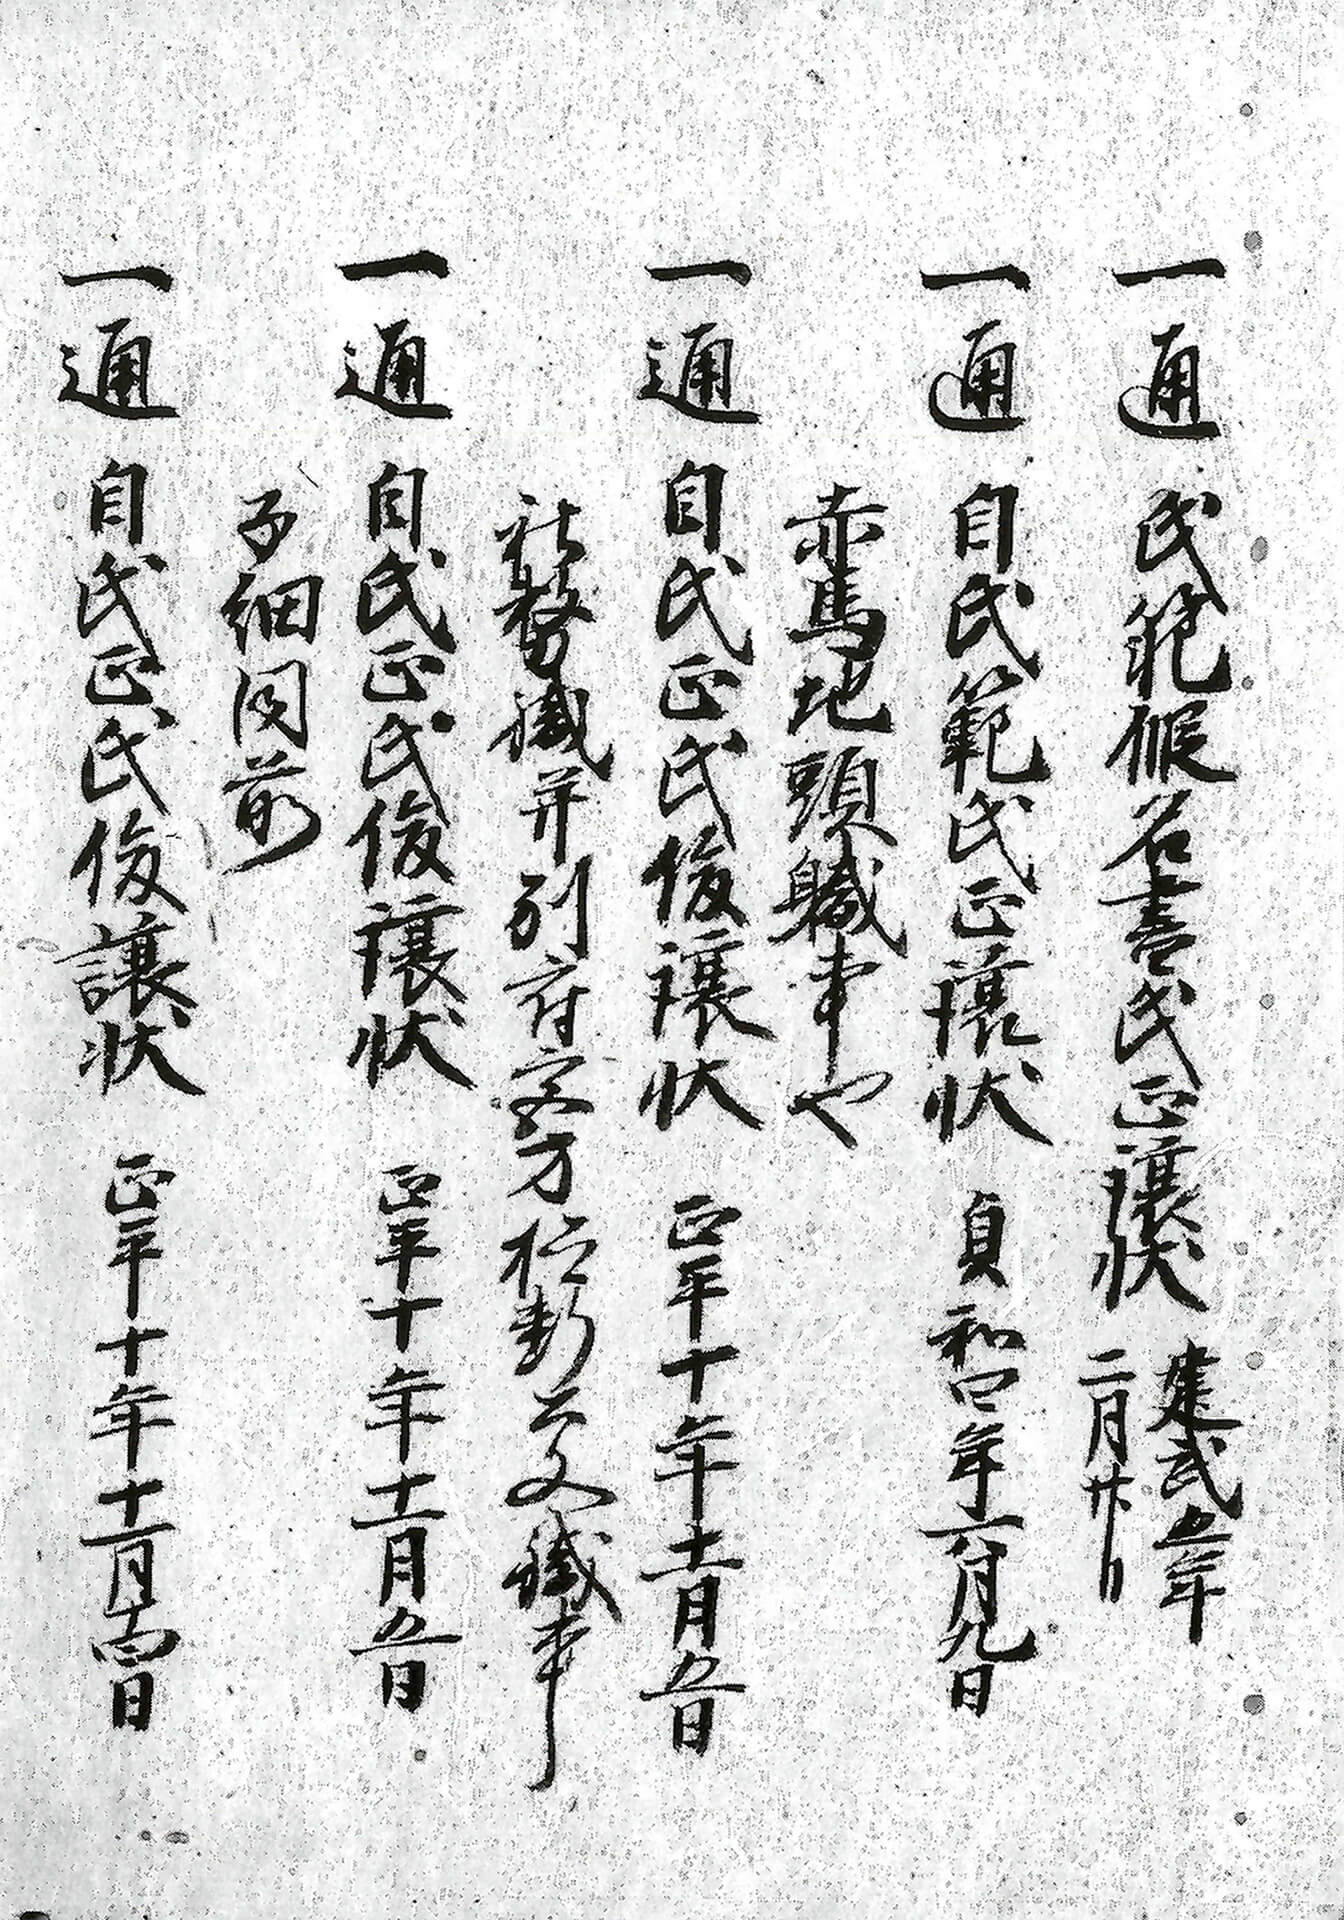 一通 氏範假名書氏正讓状 建武五年
二月廿日
一通 自氏範氏正讓状 貞和四年六月九日
赤馬地頭職事也
一通 自氏正氏俊讓状 正平十年十一月五日
社務職并別府定方檢断公文職事
一通 自氏正氏俊讓状 正平十年十一月五日
子細同前
一通 自氏正氏俊讓状 正平十年十一月十四日